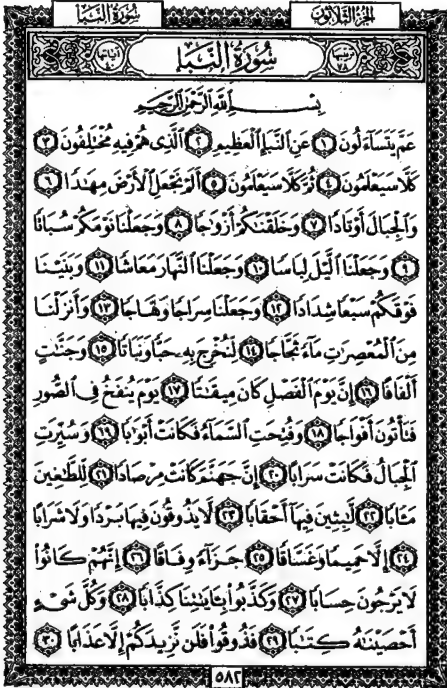 سُورَةُ النَّبَإِ
الجزء الثلاثون
سُورَةُ النَّبَإِ
بِسْمِ اللَّهِ الرَّحْمَٰنِ الرَّحِيمِ
عَمَّ يَتَسَآءَلُونَ ١ عَنِ ٱلنَّبَإِ ٱلْعَظِيمِ ٢ ٱلَّذِى هُمْ فِيهِ مُخْتَلِفُونَ ٣
كَلَّا سَيَعْلَمُونَ ٤ ثُمَّ كَلَّا سَيَعْلَمُونَ ٥ أَلَمْ نَجْعَلِ ٱلْأَرْضَ مِهَٰدًا ٦
وَٱلْجِبَالَ أَوْتَادًا ٧ وَخَلَقْنَٰكُمْ أَزْوَٰجًا ٨ وَجَعَلْنَا نَوْمَكُمْ سُبَاتًا
٩ وَجَعَلْنَا ٱلَّيْلَ لِبَاسًا ١٠ وَجَعَلْنَا ٱلنَّهَارَ مَعَاشًا ١١ وَبَنَيْنَا
فَوْقَكُمْ سَبْعًا شِدَادًا ١٢ وَجَعَلْنَا سِرَاجًا وَهَّاجًا ١٣ وَأَنزَلْنَا
مِنَ ٱلْمُعْصِرَٰتِ مَآءً ثَجَّاجًا ١٤ لِّنُخْرِجَ بِهِۦ حَبًّا وَنَبَاتًا ١٥ وَجَنَّٰتٍ
أَلْفَافًا ١٦ إِنَّ يَوْمَ ٱلْفَصْلِ كَانَ مِيقَٰتًا ١٧ يَوْمَ يُنفَخُ فِى ٱلصُّورِ
فَتَأْتُونَ أَفْوَاجًا ١٨ وَفُتِحَتِ ٱلسَّمَآءُ فَكَانَتْ أَبْوَٰبًا ١٩ وَسُيِّرَتِ
ٱلْجِبَالُ فَكَانَتْ سَرَابًا ٢٠ إِنَّ جَهَنَّمَ كَانَتْ مِرْصَادًا ٢١ لِّلطَّٰغِينَ
مَـَٔابًا ٢٢ لَّٰبِثِينَ فِيهَآ أَحْقَابًا ٢٣ لَّا يَذُوقُونَ فِيهَا بَرْدًا وَلَا شَرَابًا
٢٤ إِلَّا حَمِيمًا وَغَسَّاقًا ٢٥ جَزَآءً وِفَاقًا ٢٦ إِنَّهُمْ كَانُوا۟
لَا يَرْجُونَ حِسَابًا ٢٧ وَكَذَّبُوا۟ بِـَٔايَٰتِنَا كِذَّابًا ٢٨ وَكُلَّ شَىْءٍ
أَحْصَيْنَٰهُ كِتَٰبًا ٢٩ فَذُوقُوا۟ فَلَن نَّزِيدَكُمْ إِلَّا عَذَابًا ٣٠
٥٨٢